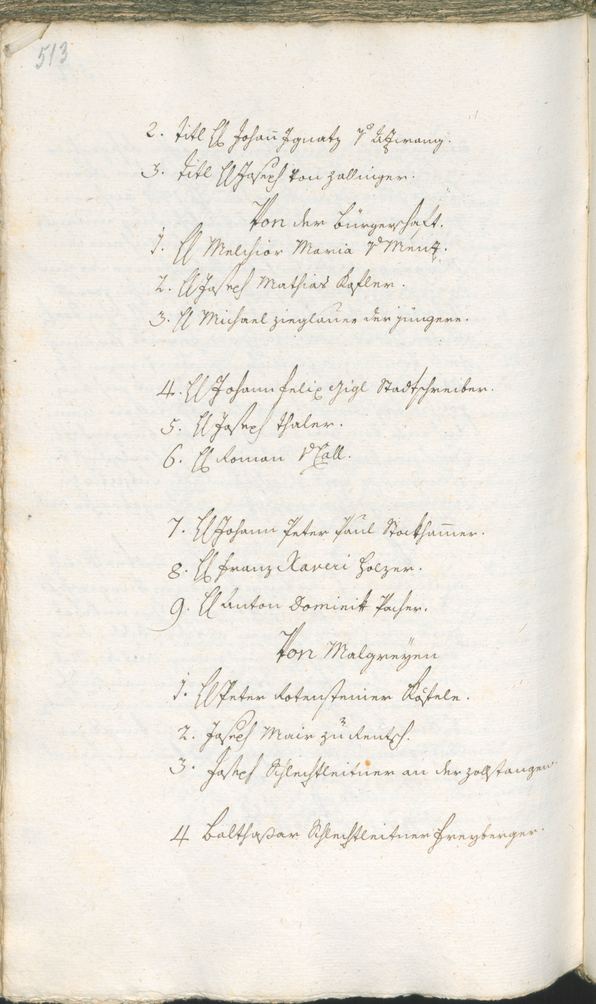 513
2. Titl H Johann Ignatz v: Atzwang.
3. Titl H Joseph von Zallinger.
Von der Bürgerschaft.
1. H Melchior Maria v: Menz.
2. H Joseph Mathias Kofler.
3. H Michael Zieglauer der jüngere.
4. H Johann Felix Gigl Stadtschreiber.
5. H Joseph Thaler.
6. H Roman Call.
7. H Johann Peter Paul Stockhamer.
8. H Franz Xaveri Holzer.
9. H Anton Dominik Pacher.
Von Malgreyen
1. H Peter Rotensteiner
2. Joseph Mair zu Rentsch.
3. Joseph Schlechtleitner an der Zollstangen.
4 Balthasar Schlechtleitner Freyberger.